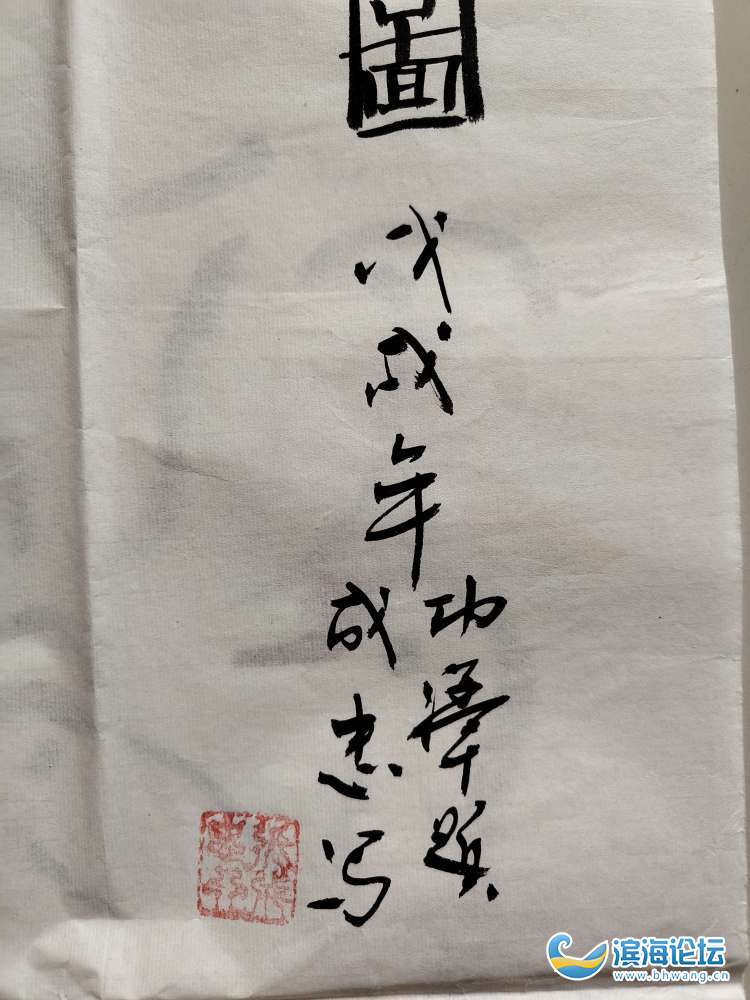 圖
戊戌年
功澤題
成忠写
滨海论坛
www.bhwang.cn